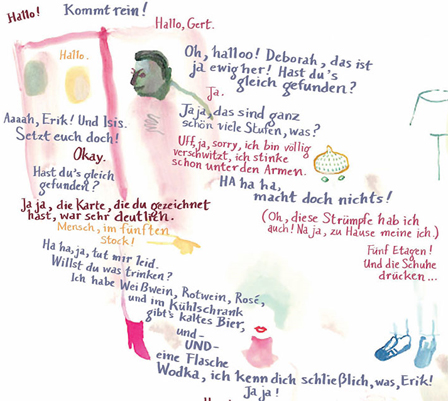 Hallo!
Kommt rein!
Hallo, Gert.
Hallo.
Oh, halloo! Deborah, das ist
ja ewig her! Hast du's
gleich gefunden?
Ja.
Jaja, das sind ganz
schön viele Stufen, was?
Aaaah, Erik! Und Isis.
Setzt euch doch!
Uff, ja, sorry, ich bin völlig
verschwitzt, ich stinke
schon unter den Armen.
Okay.
Hast du's gleich
gefunden?
HA ha ha,
macht doch nichts!
Ja ja, die Karte, die du gezeichnet
hast, war sehr deutlich.
(Oh, diese Strümpfe hab ich
auch! Na ja, zu Hause meine ich.)
Mensch, im fünften
Stock!
Fünf Etagen!
Und die Schuhe
drücken...
Ha ha, ja, tut mir leid.
Willst du was trinken?
Ich habe Weißwein, Rotwein, Rosé,
und im Kühlschrank
gibt's kaltes Bier,
und-
-UND-
eine Flasche
Wodka, ich kenn dich schließlich, was, Erik!
Ja ja!